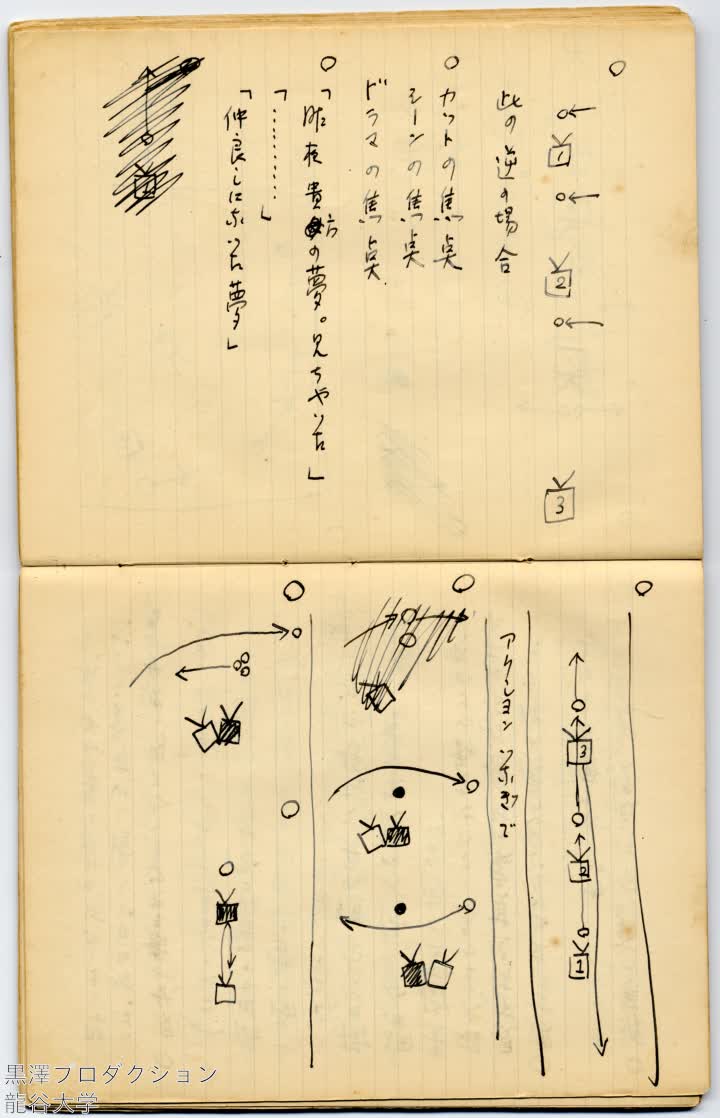 1
2
3
此の逆の場合
カットの焦点
シーンの焦点
ドラマの焦点
「昨夜貴方の夢。見ちやいた」
「………」
3
2
1
アクションつなぎで
黒澤プロダクション
龍谷大学